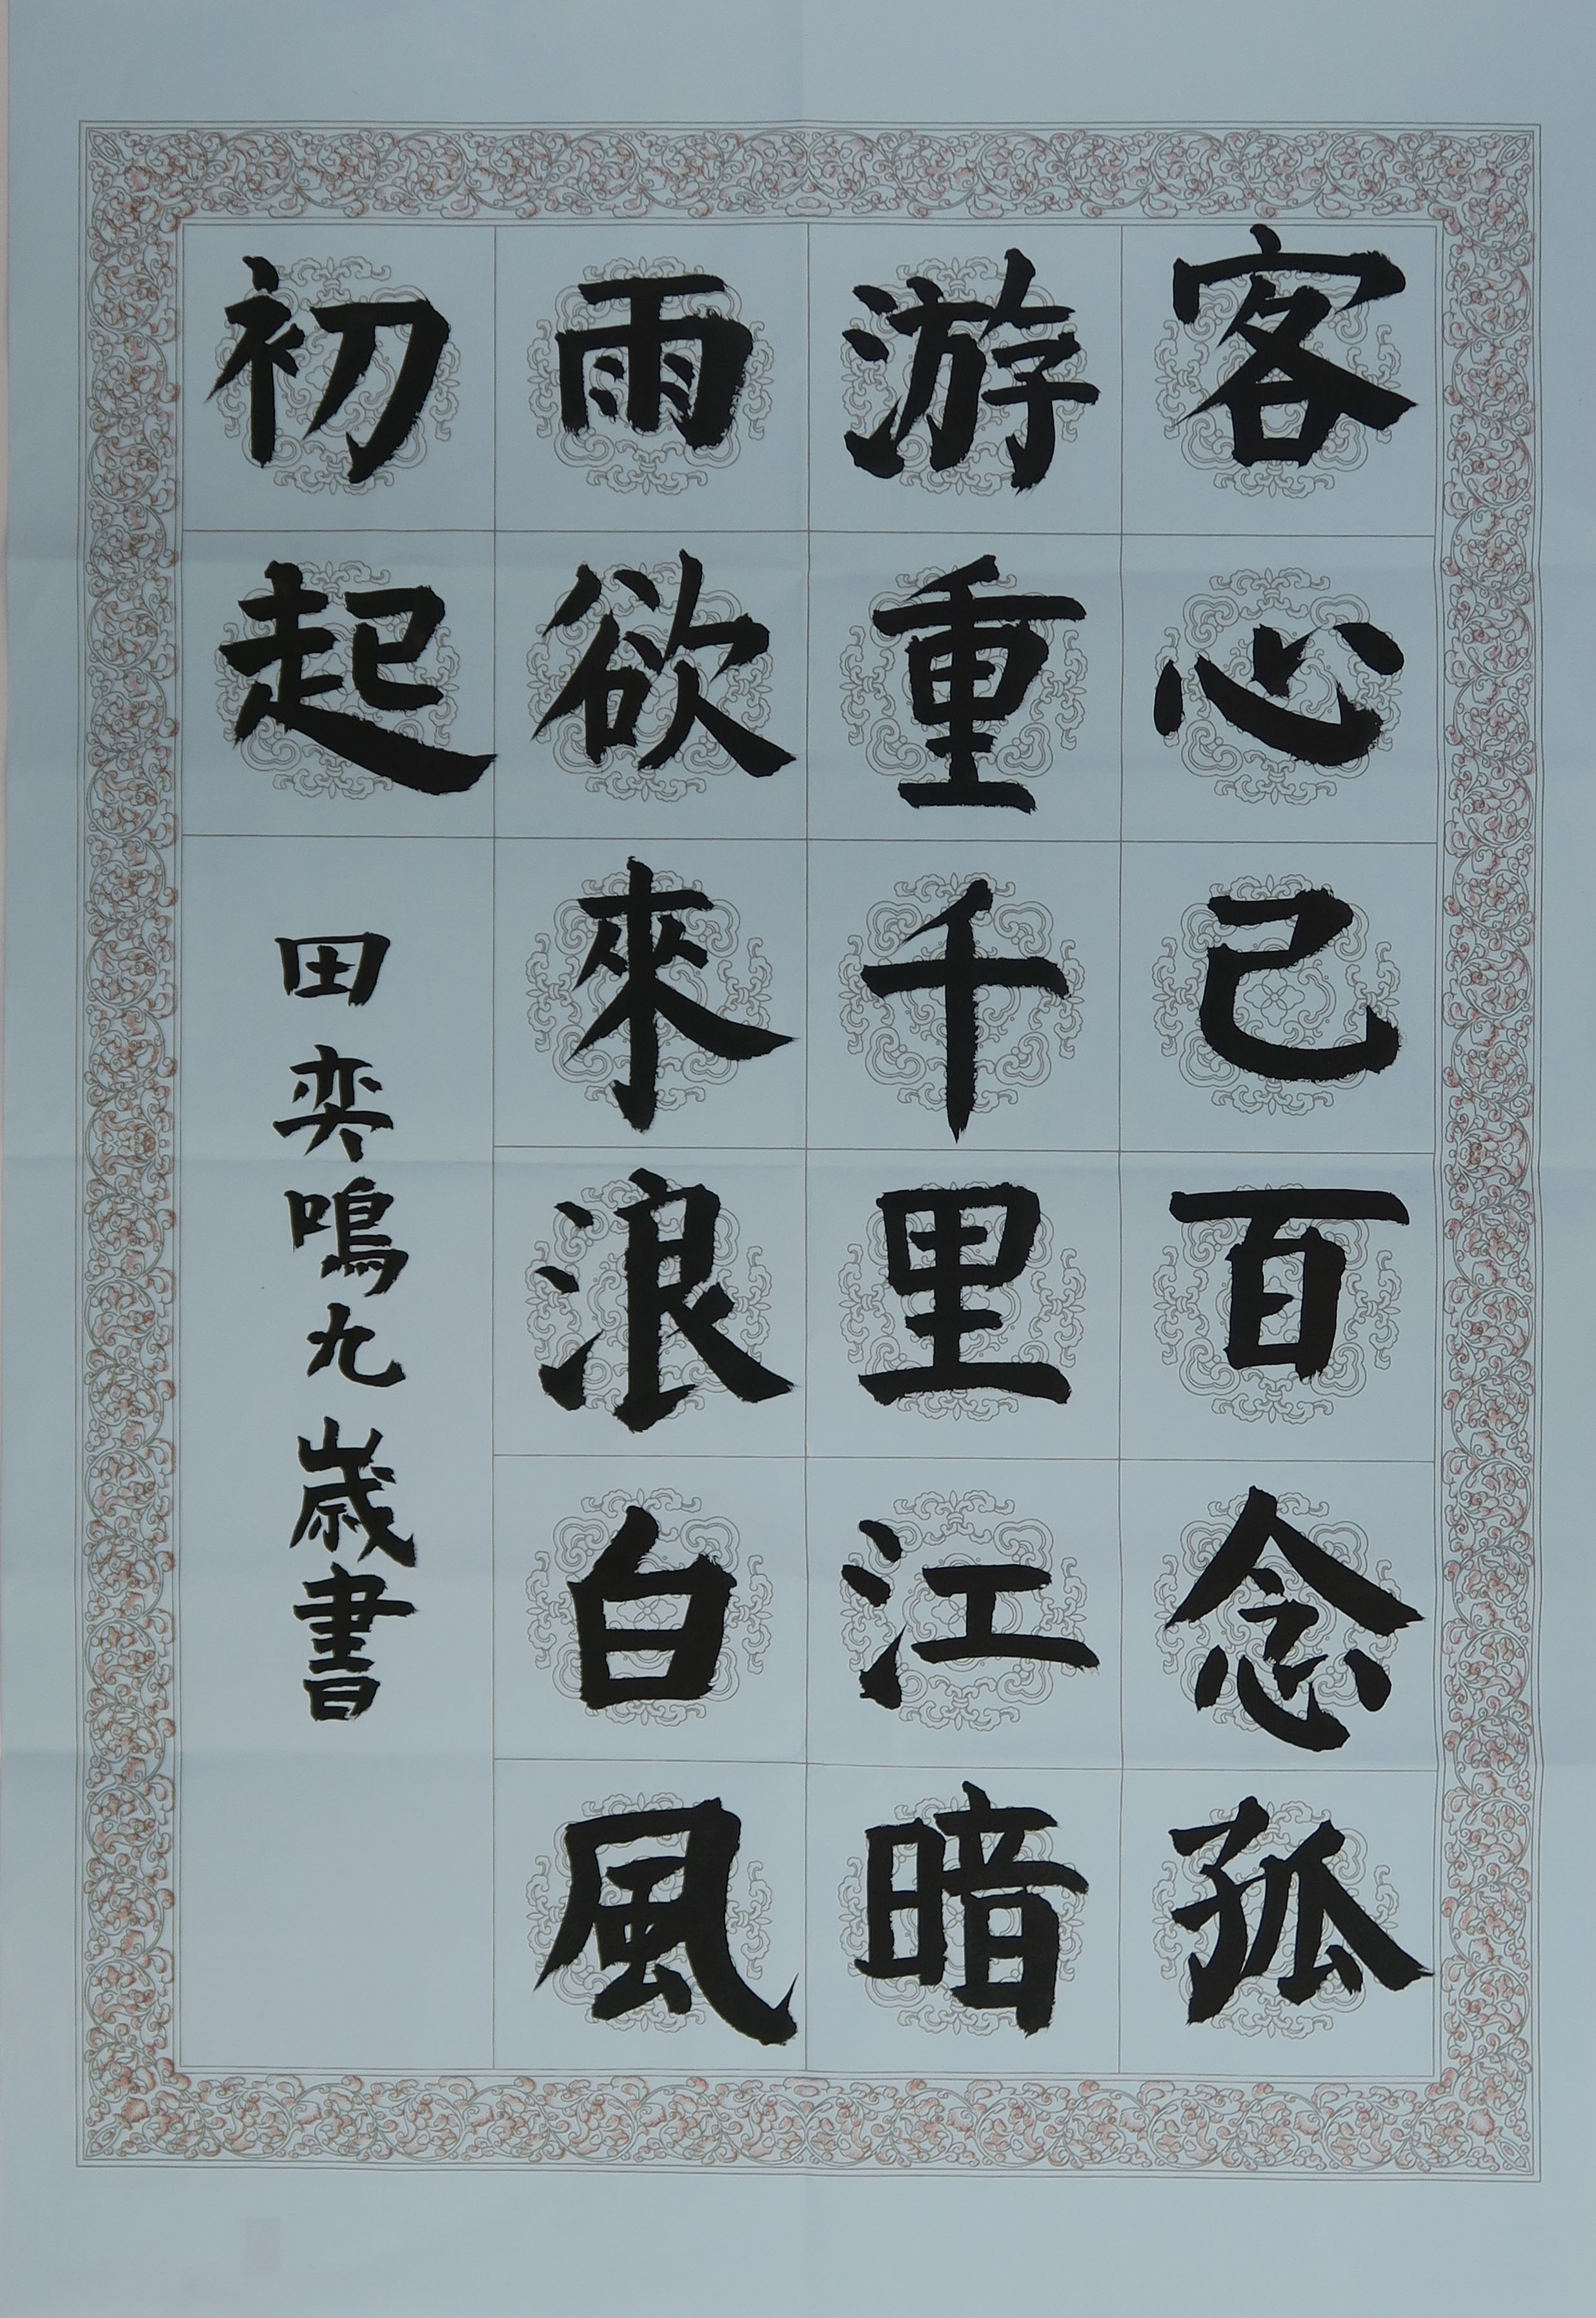 客心已百念孤
游重千里江暗
雨欲來浪白風
初起
田奕鳴九歲書